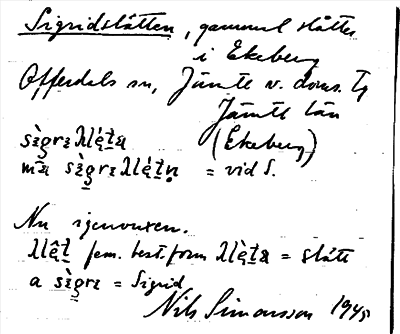 Sigridslåtten, gammal slåtter
i Ekeberg
Offerdals sn, Jämtl. v. doms. Tg
Jämtl län
sìgrɪʟlę́ʈa (Ekeberg)
mɪ sìgrɪʟlę́ʈn̥ = vid S.
Nu igenvuxen.
fem. best. form = slått
a sìgrɪ = Sigrid
Nils Simonsson 1945